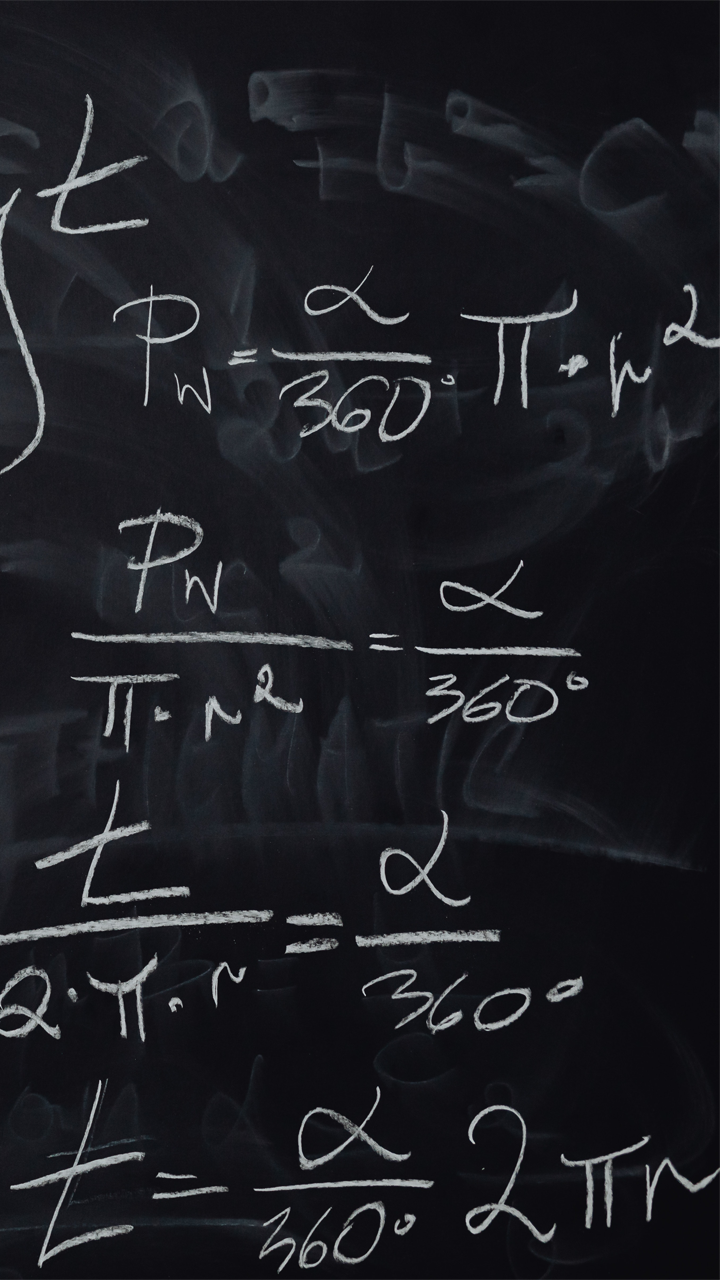 t
P_w = α/360° π · r²
P_w/(π · r²) = α/360°
t/(2 · π · r) = α/360°
t = α/360° 2πr